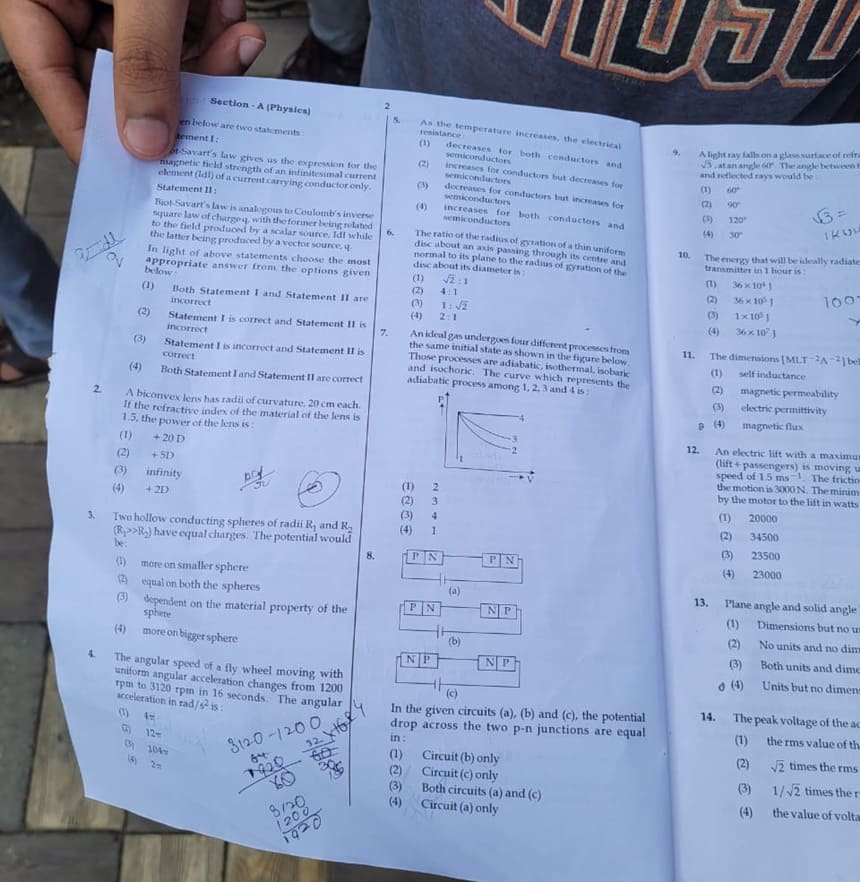 Section - A (Physics)
en below are two statements :
tement I :
ot-Savart's law gives us the expression for the
magnetic field strength of an infinitesimal current
element (Idl) of a current carrying conductor only.
Statement II :
Biot-Savart's law is analogous to Coulomb's inverse
square law of charge q, with the former being related
to the field produced by a scalar source, Idl while
the latter being produced by a vector source, q.
In light of above statements choose the most
appropriate answer from the options given
below :
(1) Both Statement I and Statement II are
incorrect
(2) Statement I is correct and Statement II is
incorrect
(3) Statement I is incorrect and Statement II is
correct
(4) Both Statement I and Statement II are correct
2. A biconvex lens has radii of curvature, 20 cm each.
If the refractive index of the material of the lens is
1.5, the power of the lens is :
(1) +20 D
(2) +5D
(3) infinity
(4) +2D
3. Two hollow conducting spheres of radii R₁ and R₂
(R₁>>R₂) have equal charges. The potential would
be :
(1) more on smaller sphere
(2) equal on both the spheres
(3) dependent on the material property of the
sphere
(4) more on bigger sphere
4. The angular speed of a fly wheel moving with
uniform angular acceleration changes from 1200
rpm to 3120 rpm in 16 seconds. The angular
acceleration in rad/s² is :
(1) 4π
(2) 12π
(3) 104π
(4) 2π
3120-1200
1920
60
3120
1200
1920
2
5. As the temperature increases, the electrical
resistance :
(1) decreases for both conductors and
semiconductors
(2) increases for conductors but decreases for
semiconductors
(3) decreases for conductors but increases for
semiconductors
(4) increases for both conductors and
semiconductors
6. The ratio of the radius of gyration of a thin uniform
disc about an axis passing through its centre and
normal to its plane to the radius of gyration of the
disc about its diameter is :
(1) √2 : 1
(2) 4 : 1
(3) 1 : √2
(4) 2 : 1
7. An ideal gas undergoes four different processes from
the same initial state as shown in the figure below.
Those processes are adiabatic, isothermal, isobaric
and isochoric. The curve which represents the
adiabatic process among 1, 2, 3 and 4 is :
P
4
3
2
1
V
(1) 2
(2) 3
(3) 4
(4) 1
8.
P N P N
(a)
P N N P
(b)
N P N P
(c)
In the given circuits (a), (b) and (c), the potential
drop across the two p-n junctions are equal
in :
(1) Circuit (b) only
(2) Circuit (c) only
(3) Both circuits (a) and (c)
(4) Circuit (a) only
9. A light ray falls on a glass surface of refra
√3, at an angle 60°. The angle between t
and reflected rays would be :
(1) 60°
(2) 90°
(3) 120°
(4) 30°
√3 =
10. The energy that will be ideally radiate
transmitter in 1 hour is :
(1) 36×10⁴ J
(2) 36×10⁵ J
(3) 1×10⁵ J
(4) 36×10⁷ J
11. The dimensions [MLT⁻²A⁻²] bel
(1) self inductance
(2) magnetic permeability
(3) electric permittivity
(4) magnetic flux
12. An electric lift with a maximu
(lift + passengers) is moving u
speed of 1.5 ms⁻¹. The frictio
the motion is 3000 N. The minim
by the motor to the lift in watts
(1) 20000
(2) 34500
(3) 23500
(4) 23000
13. Plane angle and solid angle
(1) Dimensions but no u
(2) No units and no dim
(3) Both units and dime
(4) Units but no dimen
14. The peak voltage of the ac
(1) the rms value of th
(2) √2 times the rms
(3) 1/√2 times the r
(4) the value of volta